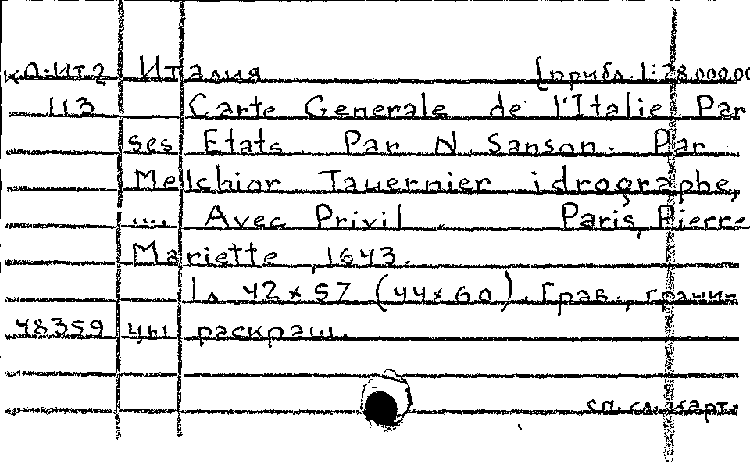 К.О:ИТ2 Италия [прибл. 1:28.000.00
113 Carte Generale de l'Italie Par
ses Etats Par N. Sanson. Par
Melchior Tavernier idrographe,
.... Avec Privil. Paris, Pierre
Mariette, 1643.
1 л. 42×57 (44×60). Грав., грани-
48359 цы раскраш.
сп. сл. карт.